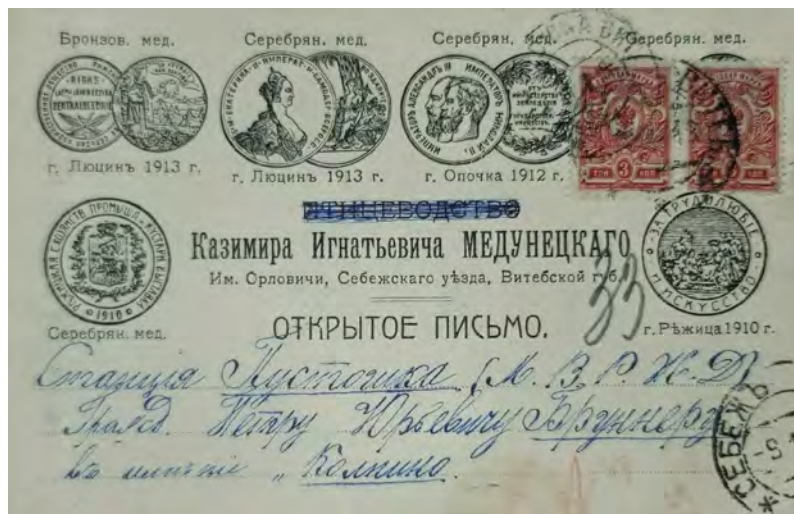 Бронзов. мед. Серебрян. мед. Серебрян. мед. Серебрян. мед.
г. Люцинъ 1913 г. г. Люцинъ 1913 г. г. Опочка 1912 г.
ПТИЦЕВОДСТВО
Казимира Игнатьевича МЕДУНЕЦКАГО,
Им. Орловичи, Себежскаго уѣзда, Витебской губ.
33
ЗА ТРУДОЛЮБІЕ И ИСКУССТВО
1910
Серебрян. мед. ОТКРЫТОЕ ПИСЬМО. г. Рѣжица 1910 г.
Станція Пустошка (М. В. Р. Ж. Д)
Петру Юрьевичу Бруннеру
въ имѣніе „Колпино.
СЕБЕЖЪ